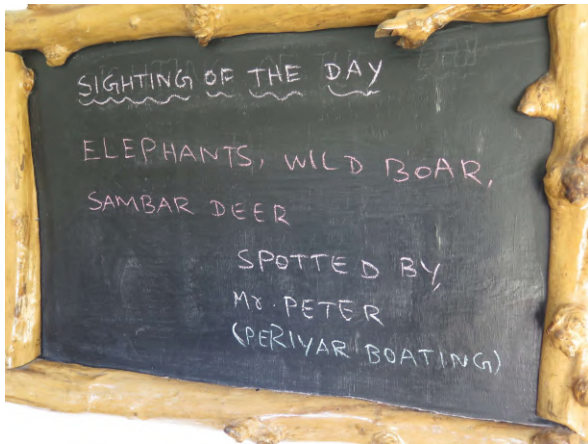 SIGHTING OF THE DAY
ELEPHANTS, WILD BOAR,
SAMBAR DEER
SPOTTED BY,
Mr. PETER
(PERIYAR BOATING)